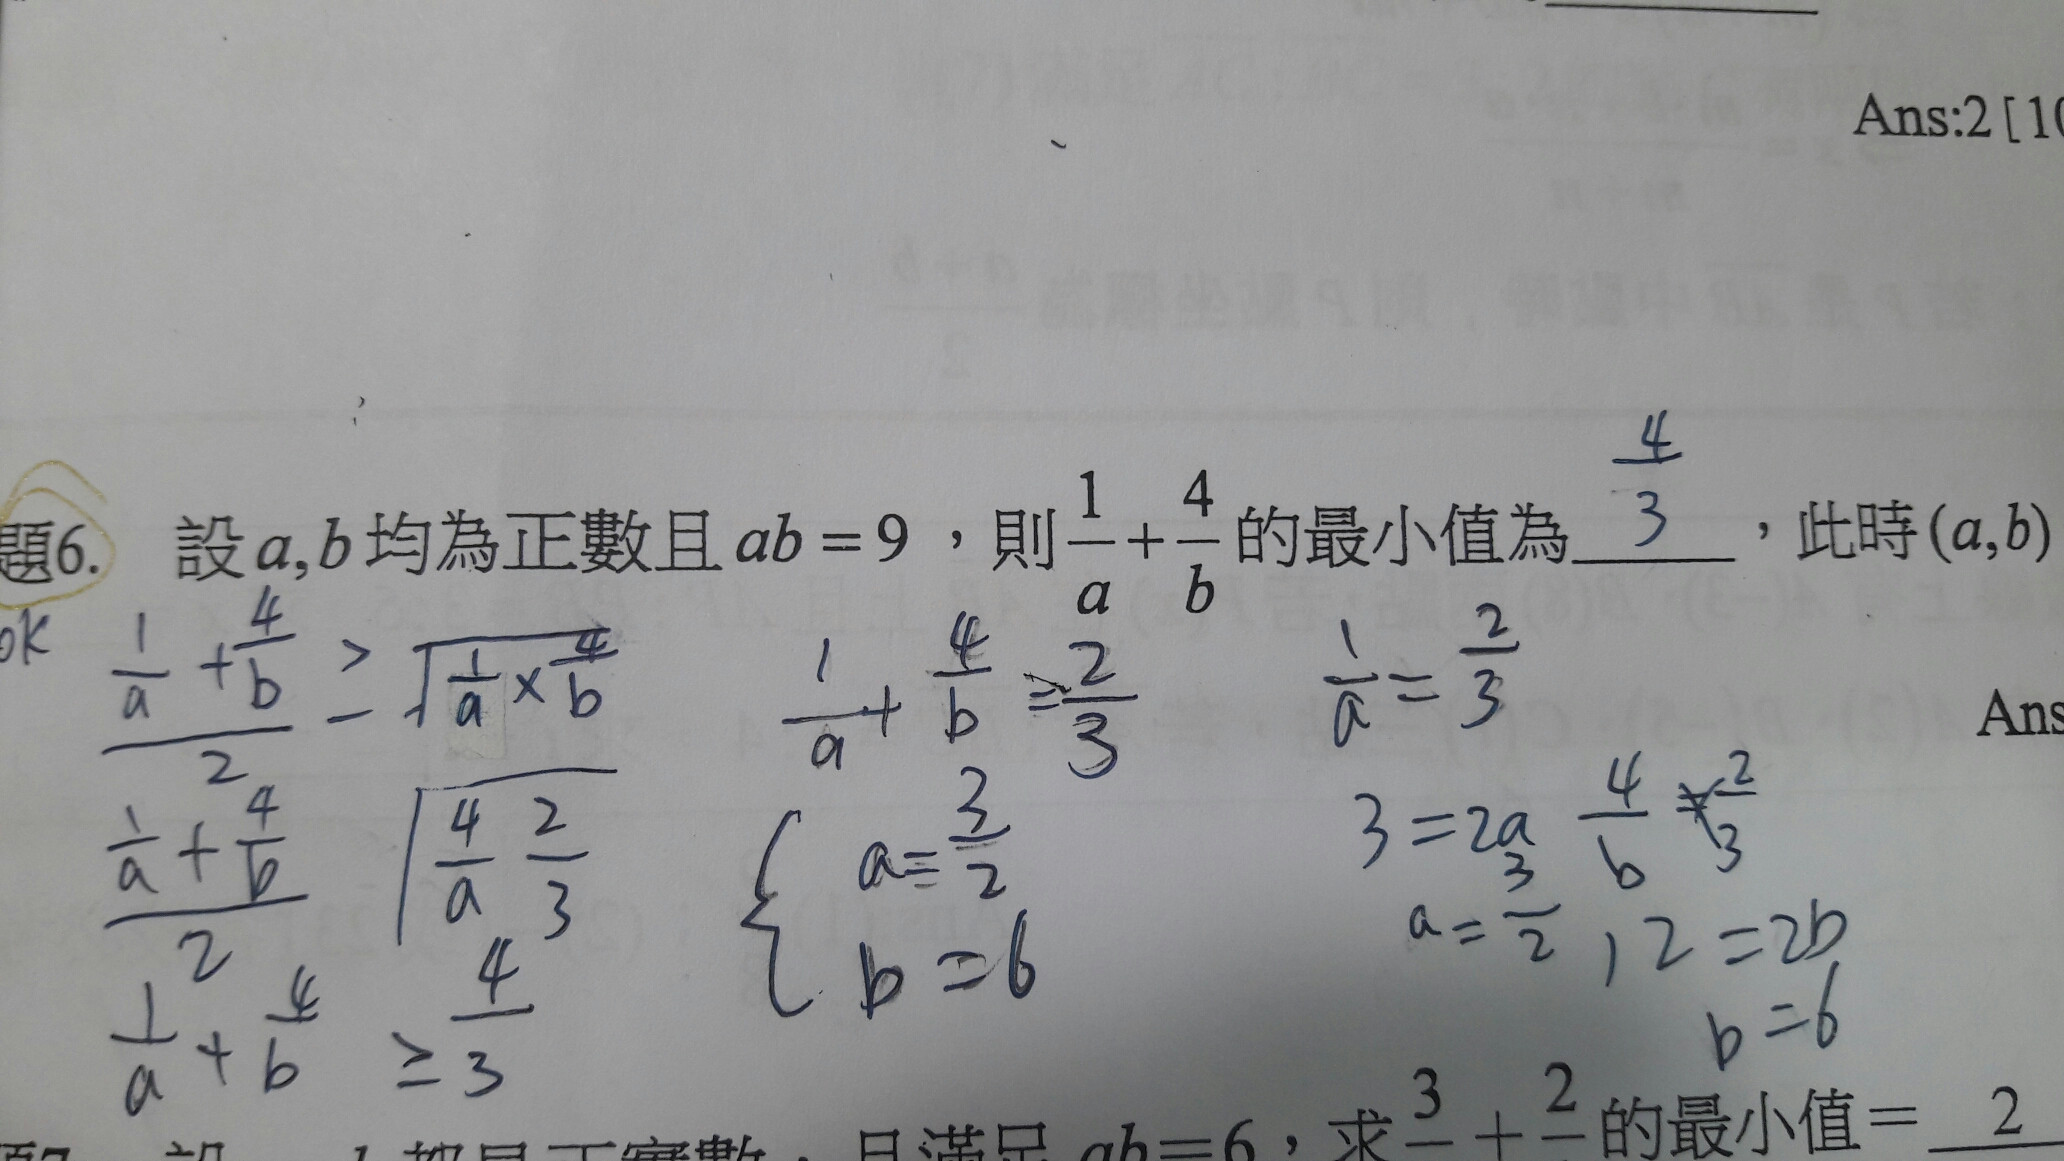 Ans:2 [10
題6. 設 a,b 均為正數且 ab = 9 ，則 1/a + 4/b 的最小值為 4/3 ，此時 (a,b)
ok
(1/a + 4/b)/2 ≥ √(1/a × 4/b)
(1/a + 4/b)/2 √(4/a 2/3
1/a + 4/b ≥ 4/3
1/a + 4/b = 2/3
{ a = 3/2
b = 6
1/a = 2/3
3 = 2a
a = 3/2
4/b = 2/3
12 = 2b
b = 6
Ans
ab = 6，求 3 + 2 的最小值 = 2